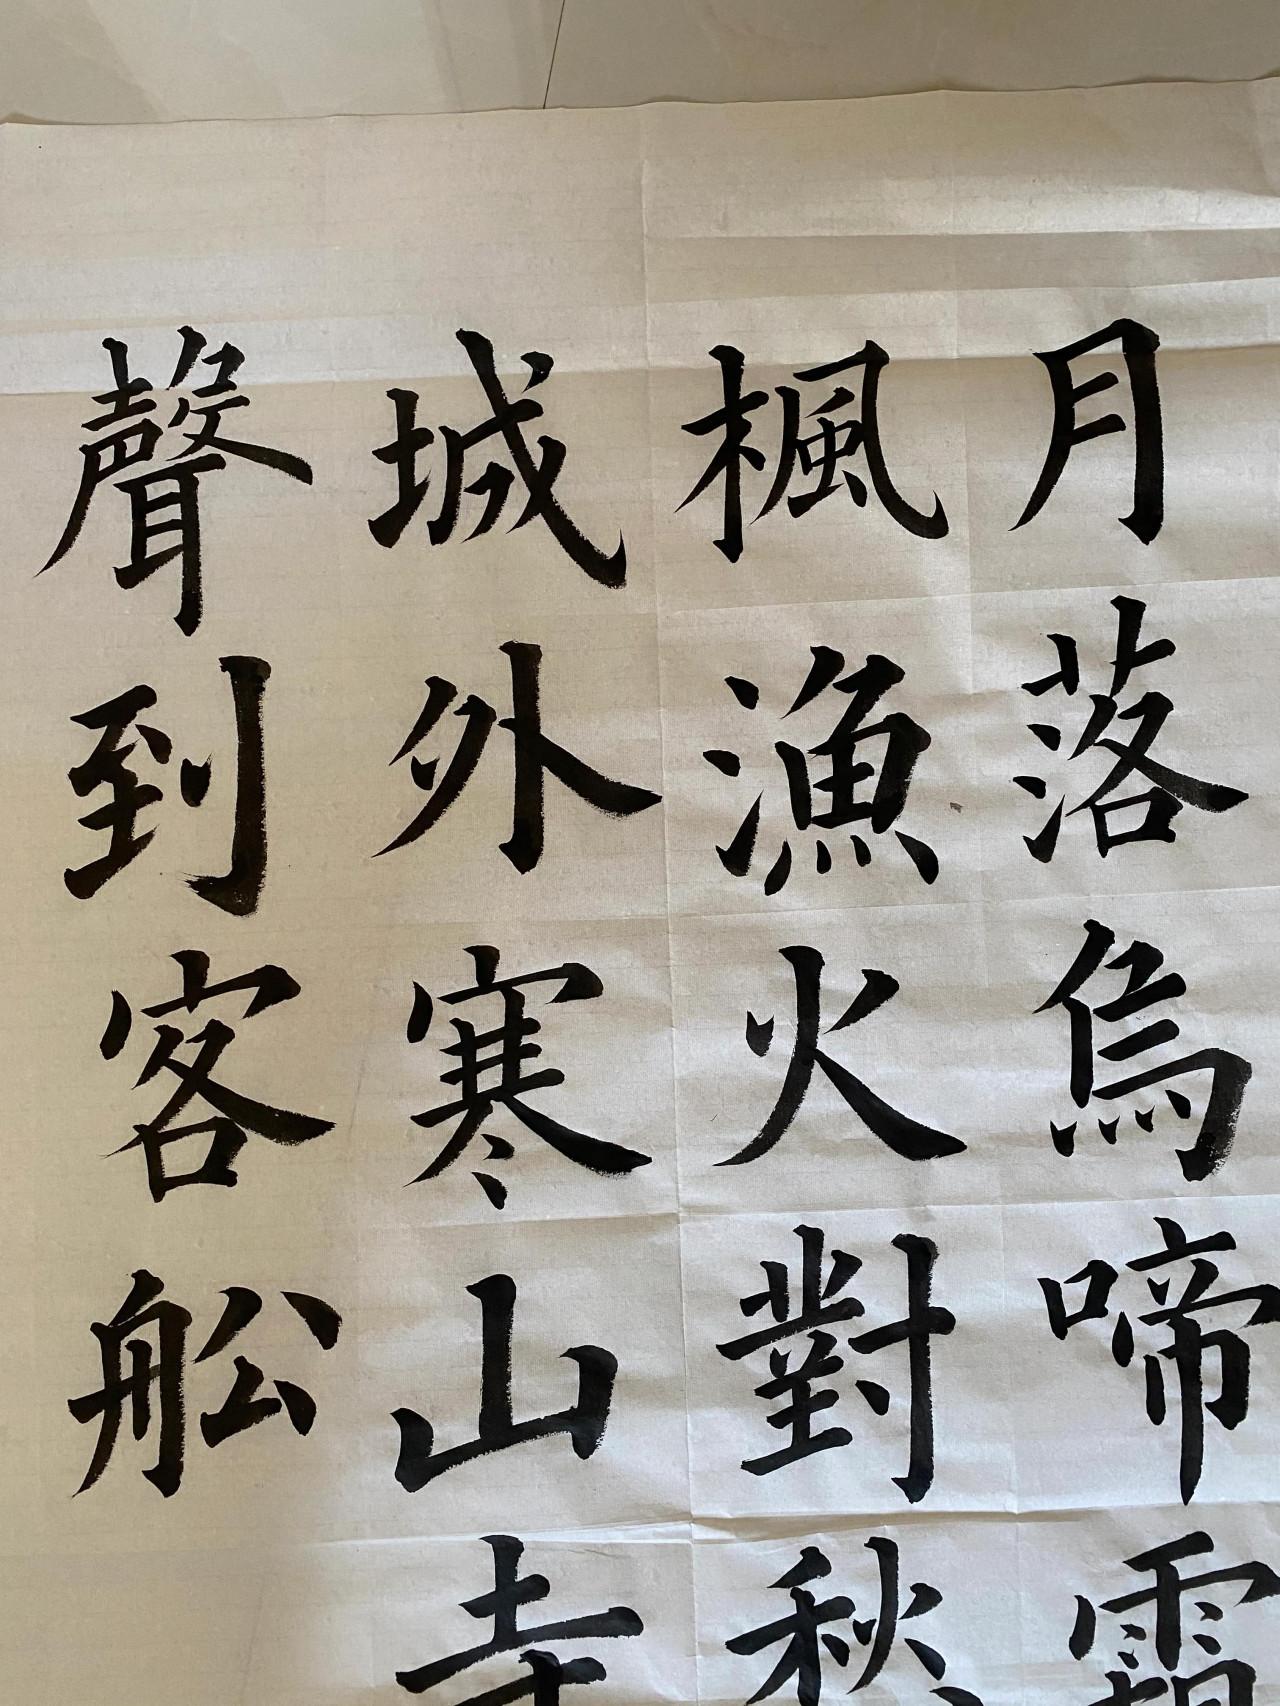 月落烏啼霜
楓漁火對愁
城外寒山寺
聲到客舩